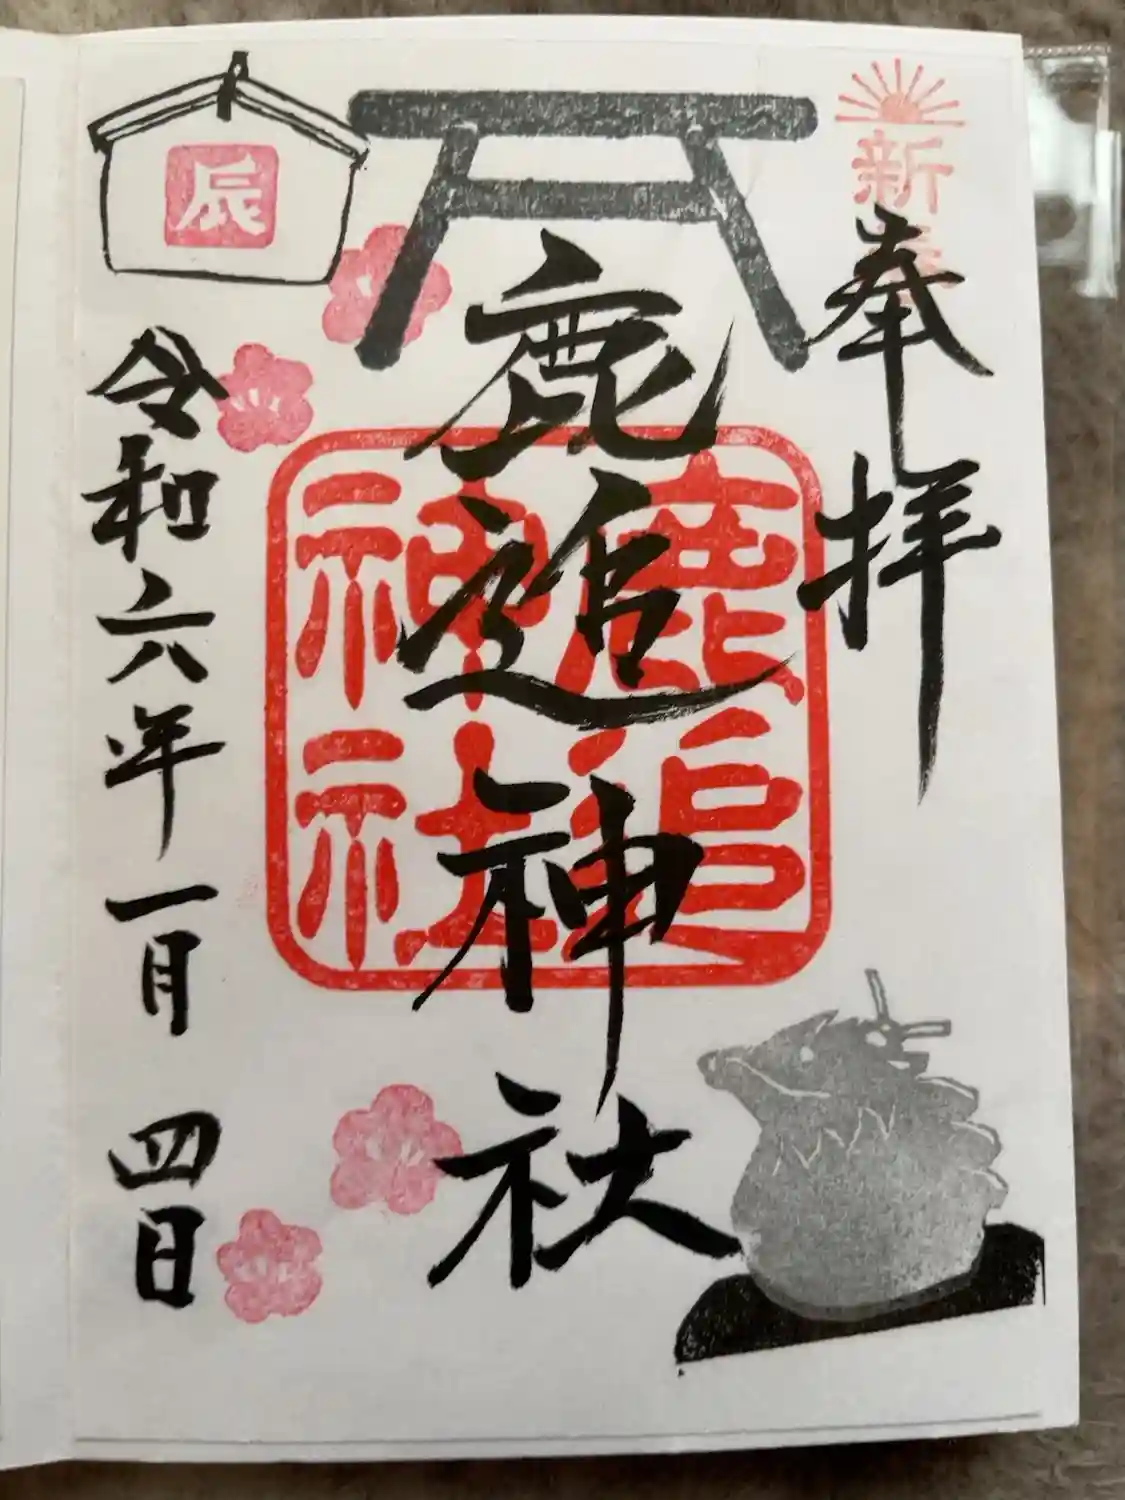 新春
奉拝
鹿追神社
鹿追
神社
辰
令和六年一月四日